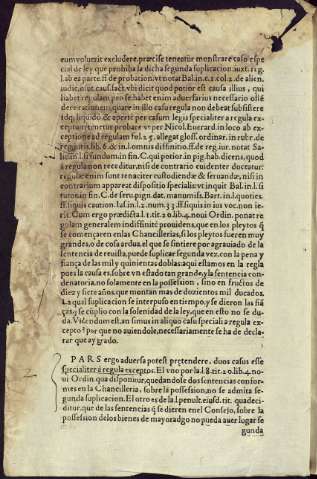 eum voluerit excludere. præcise tenetur monstrare caso espe
cial de ley que prohiba la dicha segunda suplicacion. iuxt. reg.
Lab ea parte. ff. de probation. vt notat Bal. in c. 1. col. 2. de alien.
iudic. mut. caus. fact. vbi dicit quod potior est causa illius, qui
habet regulam pro se habet enim aduersarius necessario
de re rationem, quare in illo casu regula non debeat subsistere
idq. liquido & aperte per casum legis specialiter a regula ex-
ceptum tenetur probare vt per Nicol. Euerard. in loco ab ex-
ceptione ad regulam fol. 2 5. allegat gloss. ordinar. in rubr. de
reg. iuris lib. 6. & in l. omnis diffinitio. ff. de reg. iur. notat Sa-
lic. in l. si fundum. in fin. C. qui potior in pig. hab. dicens, quod
a regulation receditur, nisi de contrario euidenter doceatur.
regulæ enim sunt tenaciter custodiendæ & seruandæ, nisi in
contrarium appareat dispositio specialis vt inquit Bal. in l. si
tutor. in fin. C. de seru. pign. dat. manumiss. Bart. in l. quoties.
ff. si quis caution. Ias. in l. 2. num. 33. ff. si quis in ius voc. non ie-
rit. Cum ergo prædicta l. 1. tit. 20 lib. 4. noui Ordin. ponat re
gulam generalem indiffinité prouidens, que en los pleytos q
se començaren en las Chancillerias, si los pleytos fueren muy
grandes, o de cosa ardua. el que se sintiere por agrauiado de la
sentencia de reuista, puede suplicar segunda vez, con la pena y
fiança de las mil y quinientas doblas: aqui estamos en la regla
pues la causa es, sobre vn estado tan grande, y la sentencia con
denatoria, no solamente en la possession, sino en fructos de
diez y siete años, que montan mas de dozientos mil ducados.
La qual suplicacion se interpuso en tiempo, y se dieron las fiã
ças, y se cũplio con la solenidad de la ley, que en esto no se du-
da. Videndum est, an simus in aliquo casu speciali a regula ex-
cepto? por que no auiendole, necessariamente se ha de decla-
rar que ay grado.
PARS ergo aduersa potest prętendere, duos casus esse
specialiter á regula exceptos. El vno por la l. 8. tit. 20. lib. 4. no-
ui Ordin. qua disponitur, quedandole dos sentencias confor-
mes en la Chancilleria, sobre la possession, no se admita se-
gunda suplicacion. El otro es de la l. penult. eiusd. tit. qua deci-
ditur, que de las sentencias q se dieren en el Consejo, sobre la
possession de los bienes de mayoradgo no pueda auer lugar se
gunda